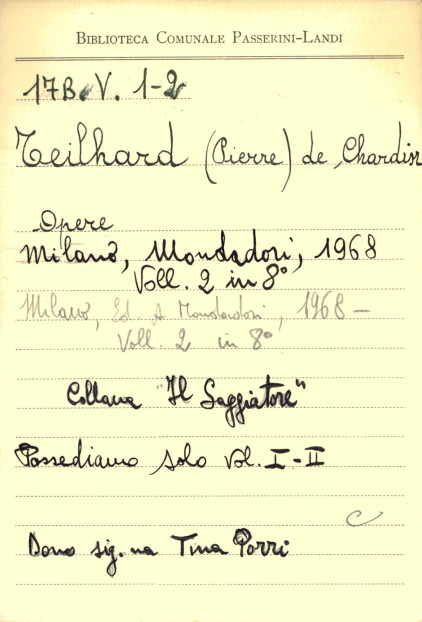 BIBLIOTECA COMUNALE PASSERINI-LANDI
17B. V. 1-2
Teilhard (Pierre) de Chardin
Opere
Milano, Mondadori, 1968
Voll. 2 in 8°
Milano, Ed. A. Mondadori, 1968 —
Voll. 2 in 8°
Collana "Il Saggiatore"
Possediamo solo vol. I - II
C
Dono sig.na Tina Porri